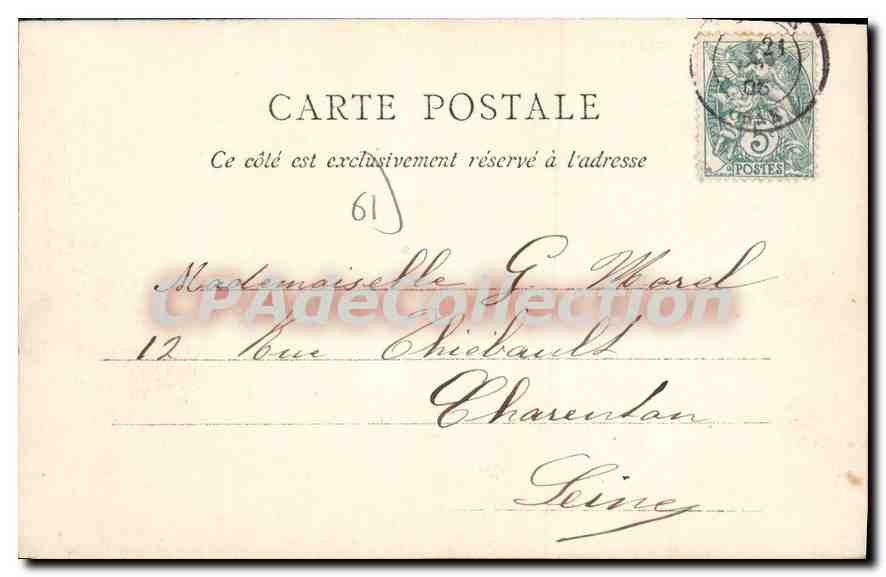 21
03
ORNE
5
POSTES
CARTE POSTALE
Ce côté est exclusivement réservé à l'adresse
61
Mademoiselle G Morel
CPAdeCollection
12 Rue Thiébault
Charenton
Seine